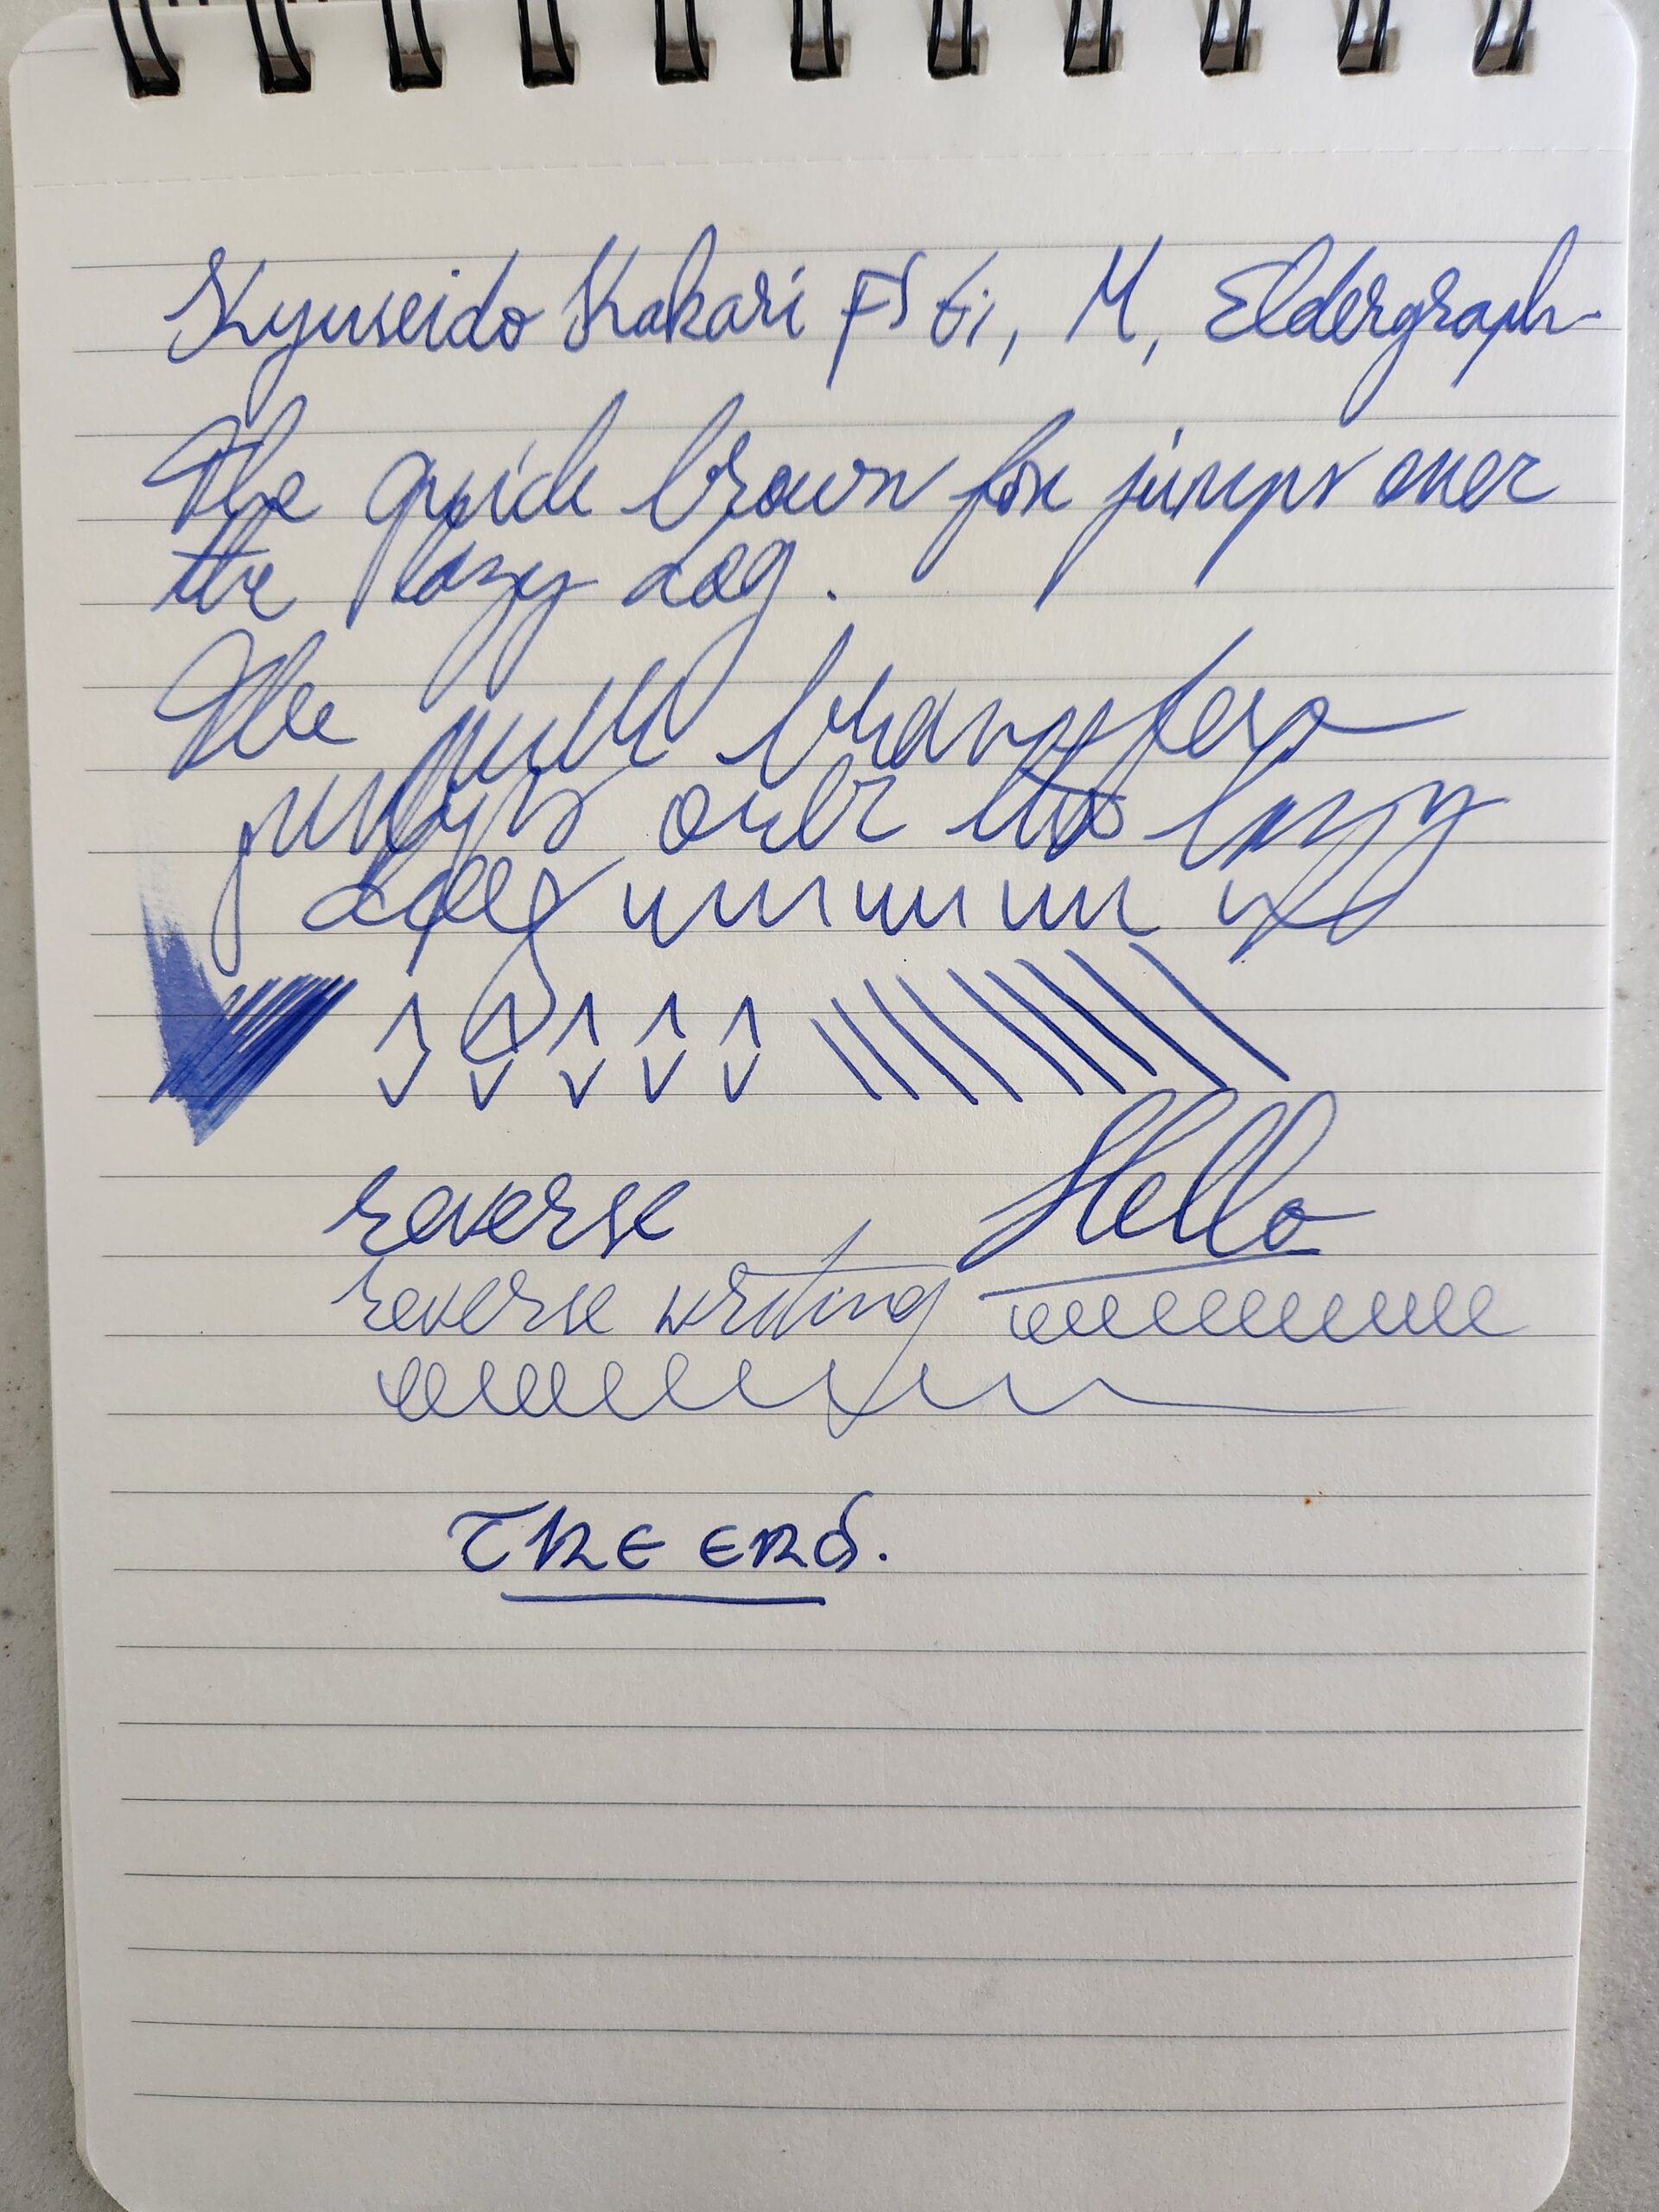 Kyuseido Kakari FS Ti, M, Eldergraph
The quick brown fox jumps over
the lazy dog.
The quick brown fox
jumps over the lazy
dog
reverse Hello
reverse writing
THE END.